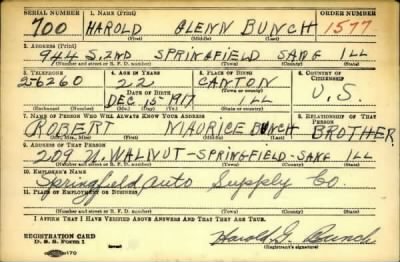 SERIAL NUMBER 1. NAME (Print) ORDER NUMBER
700 HAROLD GLENN BUNCH 1577
(First) (Middle) (Last)
2. ADDRESS (Print)
944 S. 2ND SPRINGFIELD SANG ILL
(Number and street or R. F. D. number) (Town) (County) (State)
3. TELEPHONE 4. AGE IN YEARS 5. PLACE OF BIRTH 6. COUNTRY OF CITIZENSHIP
2-6260 22 CANTON
DATE OF BIRTH (Town or county) U.S.
DEC 15 1917 ILL
(Exchange) (No.) (Mo.) (Day) (Yr.) (State or country)
7. NAME OF PERSON WHO WILL ALWAYS KNOW YOUR ADDRESS 8. RELATIONSHIP OF THAT PERSON
ROBERT MAURICE BUNCH BROTHER
(Mr., Mrs., Miss) (First) (Middle) (Last)
9. ADDRESS OF THAT PERSON
209 N. WALNUT - SPRINGFIELD - SANG ILL
(Number and street or R. F. D. number) (Town) (County) (State)
10. EMPLOYER'S NAME
Springfield Auto Supply Co.
11. PLACE OF EMPLOYMENT OR BUSINESS
(Number and street or R. F. D. number) (Town) (County) (State)
I AFFIRM THAT I HAVE VERIFIED ABOVE ANSWERS AND THAT THEY ARE TRUE.
REGISTRATION CARD
D. S. S. Form 1 Harold G. Bunch
(Registrant's signature)